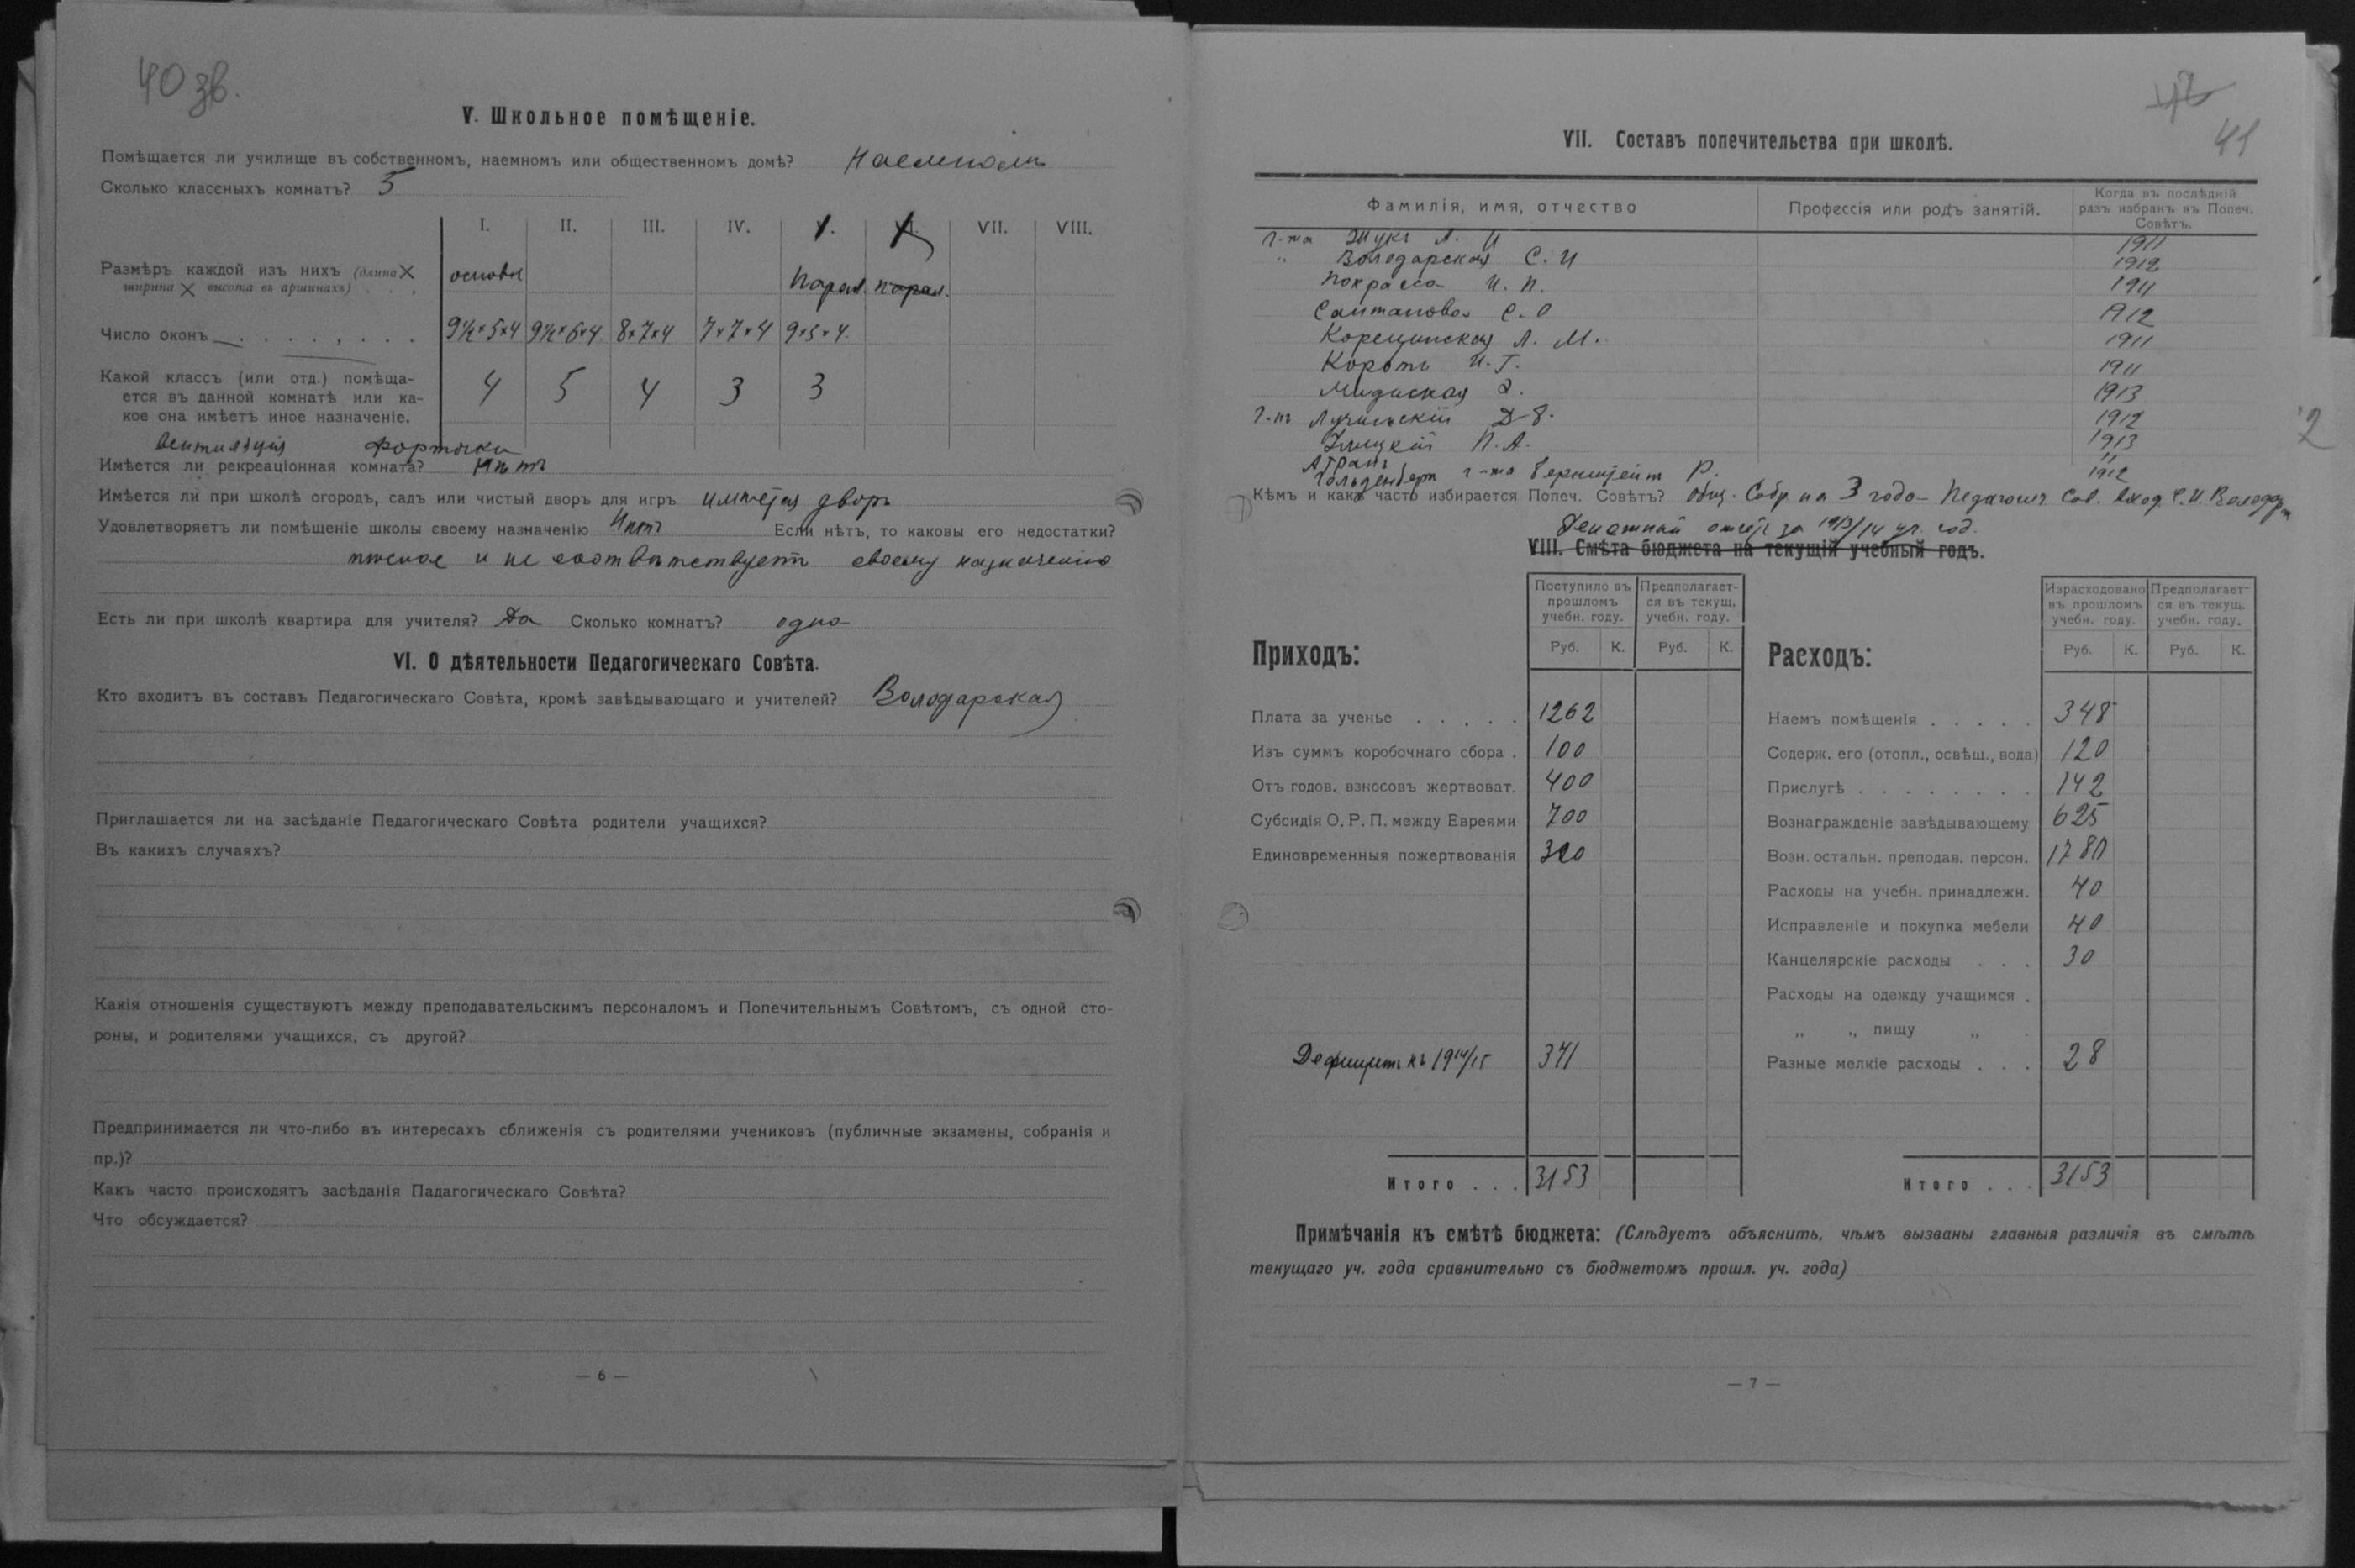 40 зв.
V. Школьное помѣщеніе.
Помѣщается ли училище въ собственномъ, наемномъ или общественномъ домѣ? Наемномъ
Сколько классныхъ комнатъ? 5
I. II. III. IV. V. VI. VII. VIII.
Размѣръ каждой изъ нихъ (длина ×
ширина × высота въ аршинахъ) . . .
основн. Парал. парал.
Число оконъ . . . . . . . 9½×5×4 9½×6×4 8×7×4 7×7×4 9×5×4
Какой классъ (или отд.) помѣща-
ется въ данной комнатѣ или ка-
кое она имѣетъ иное назначеніе.
4 5 4 3 3
Вентиляція форточки
Имѣется ли рекреаціонная комната? Нѣтъ
Имѣется ли при школѣ огородъ, садъ или чистый дворъ для игръ имѣется дворъ
Удовлетворяетъ ли помѣщеніе школы своему назначенію Нѣтъ Если нѣтъ, то каковы его недостатки?
тѣсное и не соотвѣтствуетъ своему назначенію
Есть ли при школѣ квартира для учителя? Да Сколько комнатъ? одна
VI. О дѣятельности Педагогическаго Совѣта.
Кто входитъ въ составъ Педагогическаго Совѣта, кромѣ завѣдывающаго и учителей? Володарская
Приглашается ли на засѣданіе Педагогическаго Совѣта родители учащихся?
Въ какихъ случаяхъ?
Какія отношенія существуютъ между преподавательскимъ персоналомъ и Попечительнымъ Совѣтомъ, съ одной сто-
роны, и родителями учащихся, съ другой?
Предпринимается ли что-либо въ интересахъ сближенія съ родителями учениковъ (публичные экзамены, собранія и
пр.)?
Какъ часто происходятъ засѣданія Падагогическаго Совѣта?
Что обсуждается?
— 6 —
42
41
VII. Составъ попечительства при школѣ.
Фамилія, имя, отчество
Профессія или родъ занятій.
Когда въ послѣдній
разъ избранъ въ Попеч.
Совѣтъ.
г-жа Жукъ А. И 1911
" Володарская С. И 1912
Покрасса И. П. 1911
Сантанова С. О 1912
Корецинская Л. М. 1911
Коротъ И. Г. 1911
1913
г-нъ Лучинскій 1912
П. А. 1913
Атранъ "
Гольденбергъ г-жа Бернштейнъ Р. 1912
Кѣмъ и какъ часто избирается Попеч. Совѣтъ? Общ. Собр. на 3 года
Денежный отчетъ за 1913/14 уч. год.
VIII. Смѣта бюджета на текущій учебный годъ.
Приходъ:
Поступило въ
прошломъ
учебн. году.
Предполагает-
ся въ текущ.
учебн. году.
Руб. К. Руб. К.
Плата за ученье . . . . . 1262
Изъ суммъ коробочнаго сбора . 100
Отъ годов. взносовъ жертвоват. 400
Субсидія О. Р. П. между Евреями 700
Единовременныя пожертвованія
Дефицитъ къ 1914/15
Итого . . . 3153
Расходъ:
Израсходовано
въ прошломъ
учебн. году.
Предполагает-
ся въ текущ.
учебн. году.
Руб. К. Руб. К.
Наемъ помѣщенія . . . . . 348
Содерж. его (отопл., освѣщ., вода) 120
Прислугѣ . . . . . . . . 142
Вознагражденіе завѣдывающему 625
Возн. остальн. преподав. персон. 1780
Расходы на учебн. принадлежн. 40
Исправленіе и покупка мебели 40
Канцелярскіе расходы . . . 30
Расходы на одежду учащимся .
„ „ пищу „ .
Разные мелкіе расходы . . . 28
Итого . . . 3153
Примѣчанія къ смѣтѣ бюджета: (Слѣдуетъ объяснить, чѣмъ вызваны главныя различія въ смѣтѣ
текущаго уч. года сравнительно съ бюджетомъ прошл. уч. года)
— 7 —
2